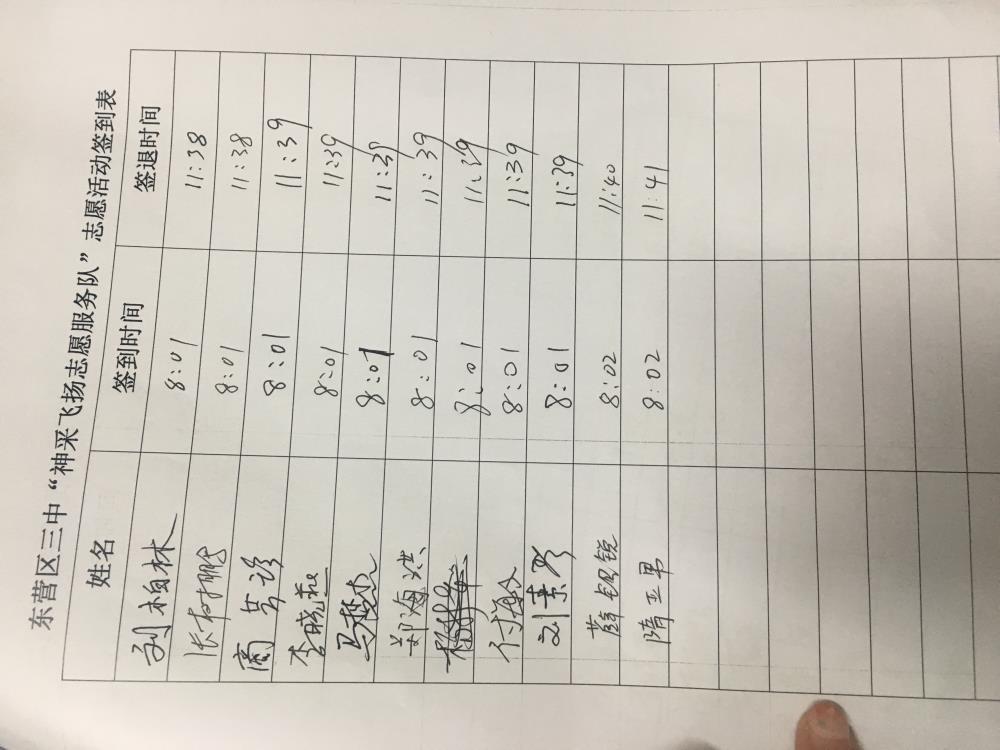 东营区三中“神采飞扬志愿服务队”志愿活动签到表
姓名 签到时间 签退时间
柏林 8:01 11:38
张树鹏 8:01 11:38
商 8:01 11:39
李晓燕 8:01 11:39
马 8:01 11:39
郑海洪 8:01 11:39
8:01 11:39
付 8:01 11:39
刘景彩 8:01 11:39
薛钥锐 8:02 11:40
隋卫男 8:02 11:41